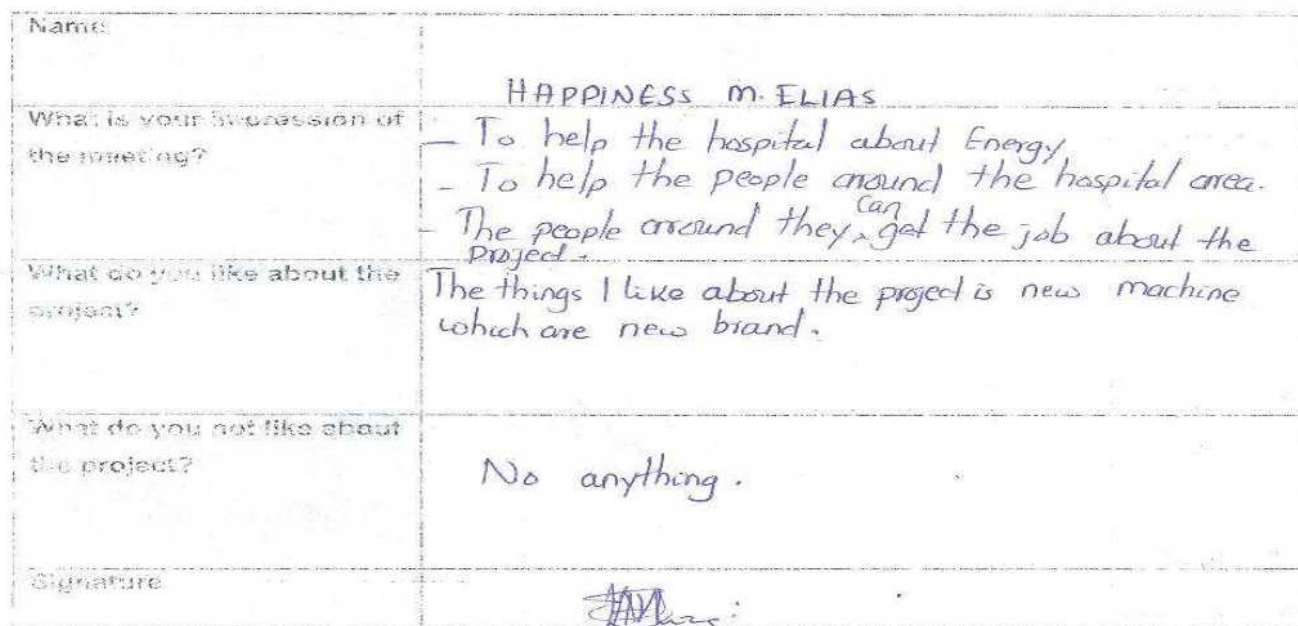 Name:
HAPPINESS M. ELIAS
What is your impression of
the meeting?
– To help the hospital about Energy
- To help the people around the hospital area.
- The people around they can get the job about the
project.
What do you like about the
project?
The things I like about the project is new machine
which are new brand.
What do you not like about
the project?
No anything.
Signature